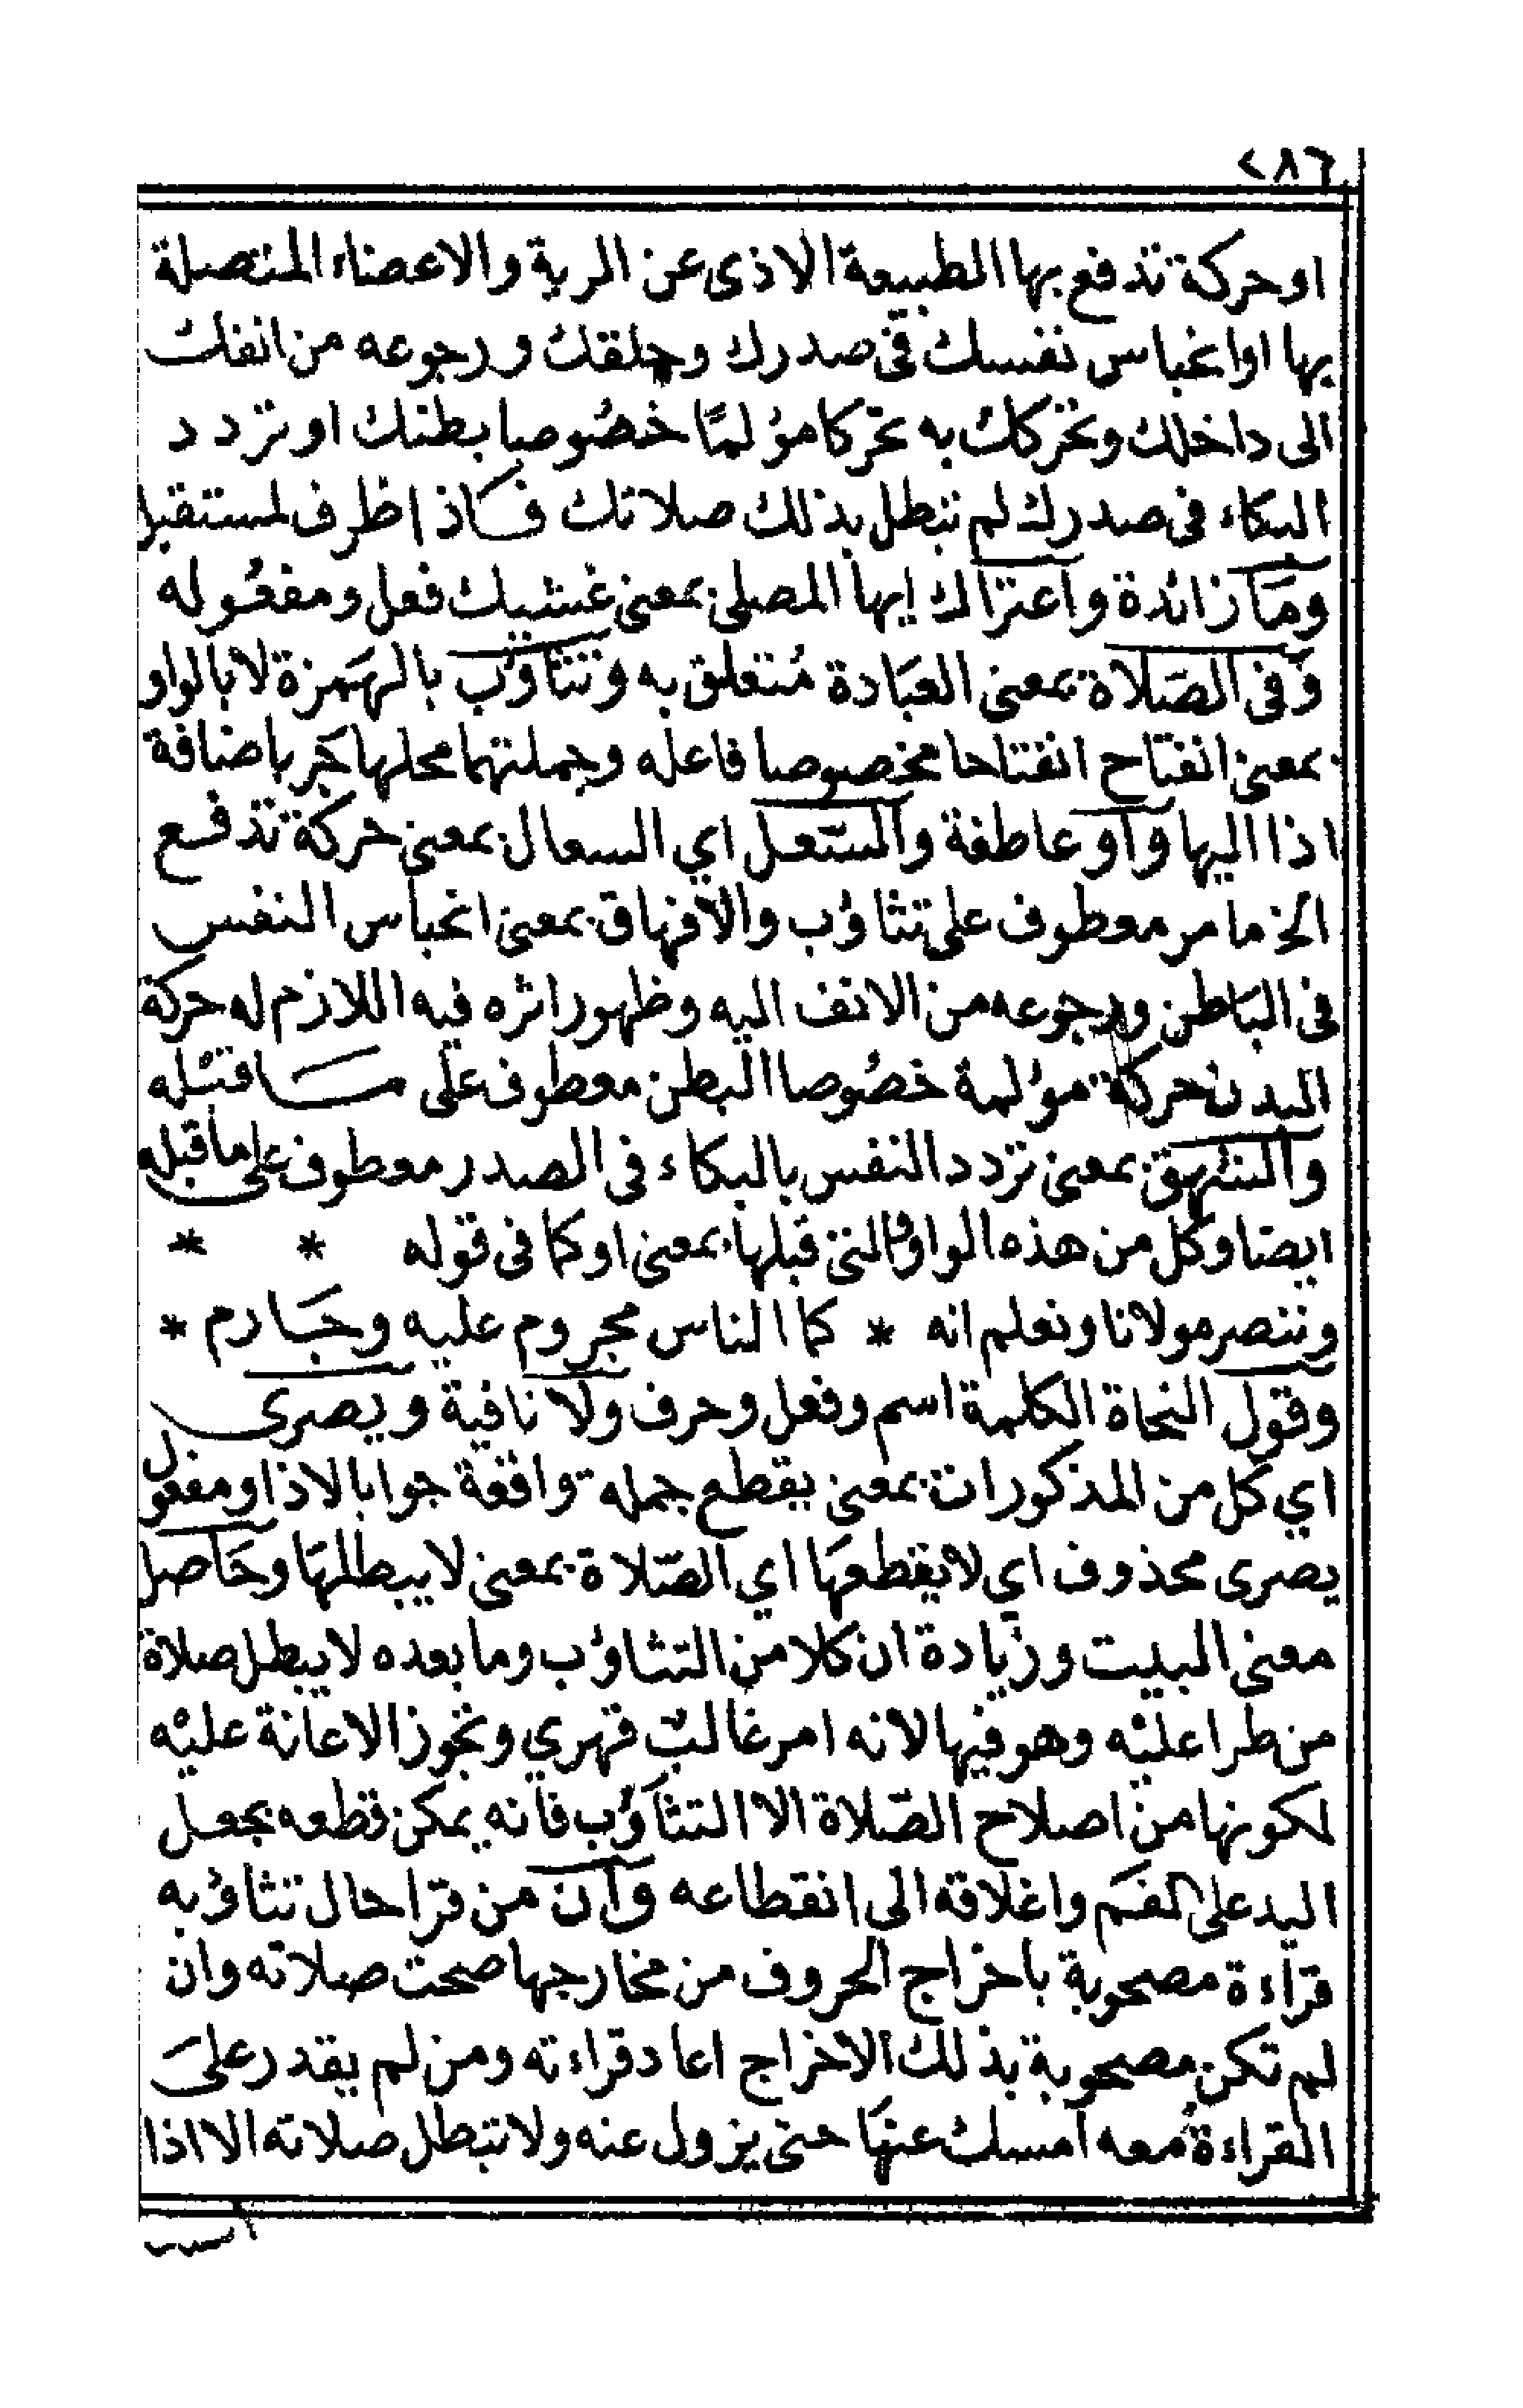 ٢٨٦
او حركة تدفع بها الطبيعة الاذى عن الرية والاعضاء المتصلة
بها او انحباس نفسك فى صدرك وحلقك ورجوعه من انفك
الى داخلك وتحركك به تحركا مؤلمًا خصُوصا بطنك او تردد
البكاء فى صدرك لم تبطل بذلك صلاتك فاذا ظرف لمستقبل
ومَا زائدة واعتراك ايها المصلى بمعنى غشيك فعل ومفعُوله
وَفى الصَلاة بمعنى العبَادة مُتعلق به وتثاؤب بالهَمزة لا بالواو
بمعنى انفتاح انفتاحا مخصوصا فاعله وجملتهما محلها جَر باضافة
اذا اليها واو عاطفة والسّعل اي السعال بمعنى حركة تدفع
الخ ما مر معطوف على تثاؤب والافهاق بمعنى انحباس النفس
فى البَاطن ورجوعه من الانف اليه وظهور اثره فيه اللازم له حركة
البدن حركة مؤلمة خصُوصا البطن معطوف على مَا قبْله
والتشهق بمعنى تردد النفس بالبكاء فى الصدر معطوف على ما قبله
ايضا وكل من هذه الواو والتى قبلها بمعنى او كما فى قوله * *
وننصر مولانا ونعلم انه * كما الناس مجروم عليه وجَارم *
وقول النحاة الكلمة اسم وفعل وحرف ولا نافية ويصرى
اي كل من المذكورات بمعنى يقطع جمله واقعة جوابا لاذا ومفعول
يصرى محذوف اي لا يقطعهَا اي الصّلاة بمعنى لا يبطلهَا وحَاصل
معنى البيت وزيادة ان كلا من التثاؤب وما بعده لا يبطل صلاة
من طرا عليْه وهو فيها لانه امر غالبٌ قهري وتجوز الاعانة عليْه
لكونها من اصلاح الصّلاة الا التثاؤب فانه يمكن قطعه بجعل
اليد على الفَم واغلاقه الى انقطاعه وان من قرا حال تثاؤبه
قراءة مصحوبة باخراج الحروف من مخارجها صحت صلاته وان
لم تكن مصحوبة بذلك الاخراج اعاد قراءته ومن لم يقدر علىَ
القراءة معه امسك عنهَا حتى يزول عنه ولا تبطل صلاته الا اذا